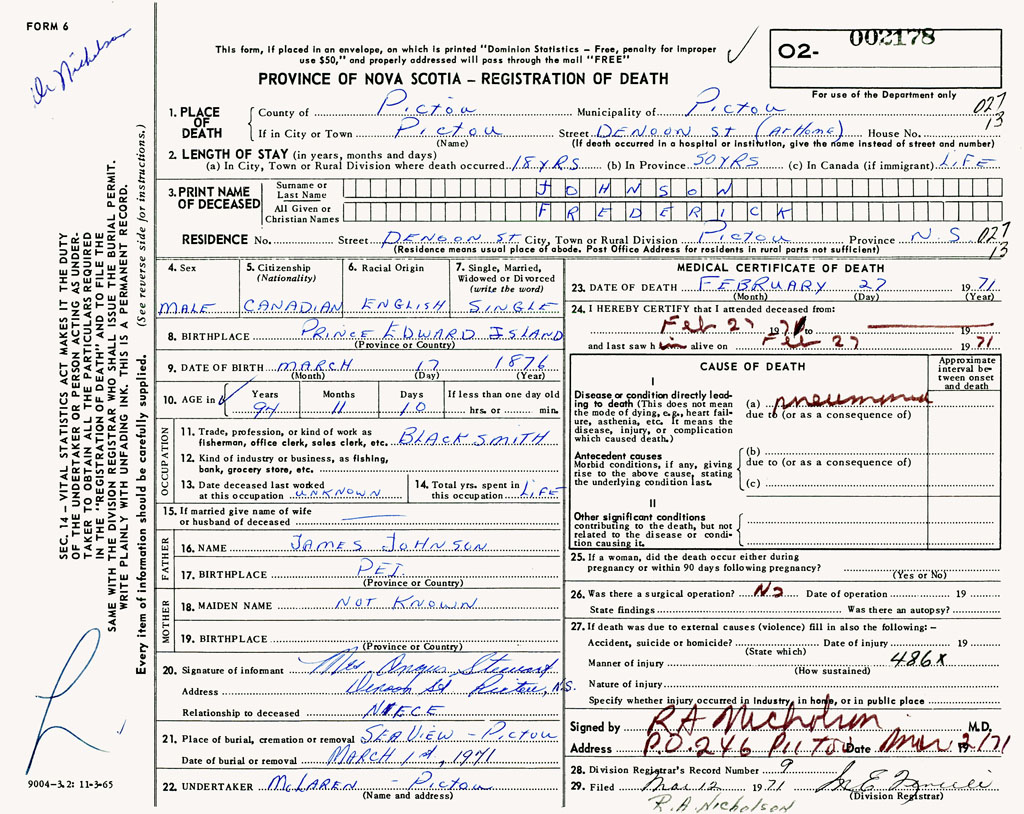 FORM 6
Dr Nicholson
This form, if placed in an envelope, on which is printed "Dominion Statistics – Free, penalty for improper
use $50," and properly addressed will pass through the mail "FREE"
PROVINCE OF NOVA SCOTIA – REGISTRATION OF DEATH
O2- 002178
For use of the Department only
027
13
1. PLACE OF DEATH
County of Pictou Municipality of Pictou
If in City or Town Pictou Street DENOON ST (At Home) House No.
(Name) (If death occurred in a hospital or institution, give the name instead of street and number)
2. LENGTH OF STAY (in years, months and days)
(a) In City, Town or Rural Division where death occurred 18 YRS (b) In Province 50 YRS (c) In Canada (if immigrant) LIFE
3. PRINT NAME OF DECEASED
Surname or Last Name JOHNSON
All Given or Christian Names FREDERICK
RESIDENCE No. Street DENOON ST City, Town or Rural Division Pictou Province N S
(Residence means usual place of abode. Post Office Address for residents in rural parts not sufficient)
027
13
4. Sex
MALE
5. Citizenship (Nationality)
CANADIAN
6. Racial Origin
ENGLISH
7. Single, Married, Widowed or Divorced (write the word)
SINGLE
8. BIRTHPLACE PRINCE EDWARD ISLAND
(Province or Country)
9. DATE OF BIRTH MARCH 17 1876
(Month) (Day) (Year)
10. AGE in Years Months Days If less than one day old
94 11 10 hrs. or min.
OCCUPATION
11. Trade, profession, or kind of work as
fisherman, office clerk, sales clerk, etc. BLACKSMITH
12. Kind of industry or business, as fishing,
bank, grocery store, etc.
13. Date deceased last worked
at this occupation UNKNOWN
14. Total yrs. spent in
this occupation LIFE
15. If married give name of wife
or husband of deceased
FATHER
16. NAME JAMES JOHNSON
17. BIRTHPLACE PEI.
(Province or Country)
MOTHER
18. MAIDEN NAME NOT KNOWN
19. BIRTHPLACE
(Province or Country)
20. Signature of informant Mrs. Angus Stewart
Address Denoon St Pictou, N.S.
Relationship to deceased NIECE
21. Place of burial, cremation or removal SEAVIEW – PICTOU
Date of burial or removal MARCH 1st, 1971
22. UNDERTAKER McLAREN – PICTOU
(Name and address)
MEDICAL CERTIFICATE OF DEATH
23. DATE OF DEATH FEBRUARY 27 1971
(Month) (Day) (Year)
24. I HEREBY CERTIFY that I attended deceased from:
Feb 27 1971 to 19
and last saw him alive on Feb 27 1971
CAUSE OF DEATH
Approximate interval between onset and death
I
Disease or condition directly leading to death (This does not mean the mode of dying, e.g., heart failure, asthenia, etc. It means the disease, injury, or complication which caused death.)
(a) pneumonia
due to (or as a consequence of)
Antecedent causes
Morbid conditions, if any, giving rise to the above cause, stating the underlying condition last.
(b)
due to (or as a consequence of)
(c)
II
Other significant conditions
contributing to the death, but not related to the disease or condition causing it.
25. If a woman, did the death occur either during
pregnancy or within 90 days following pregnancy?
(Yes or No)
26. Was there a surgical operation? No Date of operation 19
State findings Was there an autopsy?
27. If death was due to external causes (violence) fill in also the following: –
Accident, suicide or homicide? Date of injury 19
(State which)
Manner of injury 486X
(How sustained)
Nature of injury
Specify whether injury occurred in industry, in home, or in public place
Signed by RA Nicholson M.D.
Address P.O. 246 Pictou Date Mar 2/71 19
28. Division Registrar's Record Number 9
29. Filed Mar 12 1971
(Division Registrar)
R.A. Nicholson
SEC. 14 – VITAL STATISTICS ACT MAKES IT THE DUTY
OF THE UNDERTAKER OR PERSON ACTING AS UNDER-
TAKER TO OBTAIN ALL THE PARTICULARS REQUIRED
IN THE "REGISTRATION OF DEATH" AND TO FILE THE
SAME WITH THE DIVISION REGISTRAR WHO SHALL ISSUE THE BURIAL PERMIT.
WRITE PLAINLY WITH UNFADING INK. THIS IS A PERMANENT RECORD.
Every item of information should be carefully supplied. (See reverse side for instructions.)
9004-3.2: 11-3-65